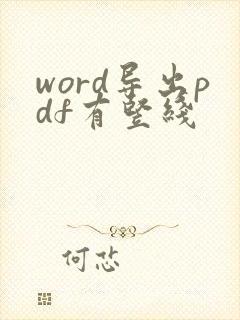 word导出p
df有竖线
何忿